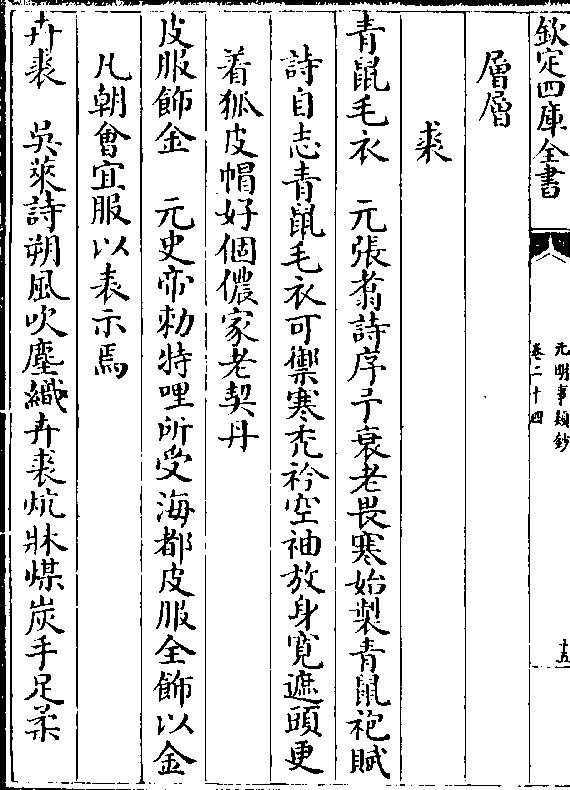 欽定四庫全書
元明事類鈔
卷二十四
十五
層層
裘
青鼠毛衣　元張翥詩序予衰老畏寒始製青鼠袍賦
詩自志青鼠毛衣可禦寒禿衿空袖放身寛遮頭更
着狐皮帽好個儂家老契丹
皮服飾金　元史帝勅特哩所受海都皮服全飾以金
凡朝會宜服以表示焉
卉裘　吳萊詩朔風吹塵織卉裘炕牀煤炭手足柔